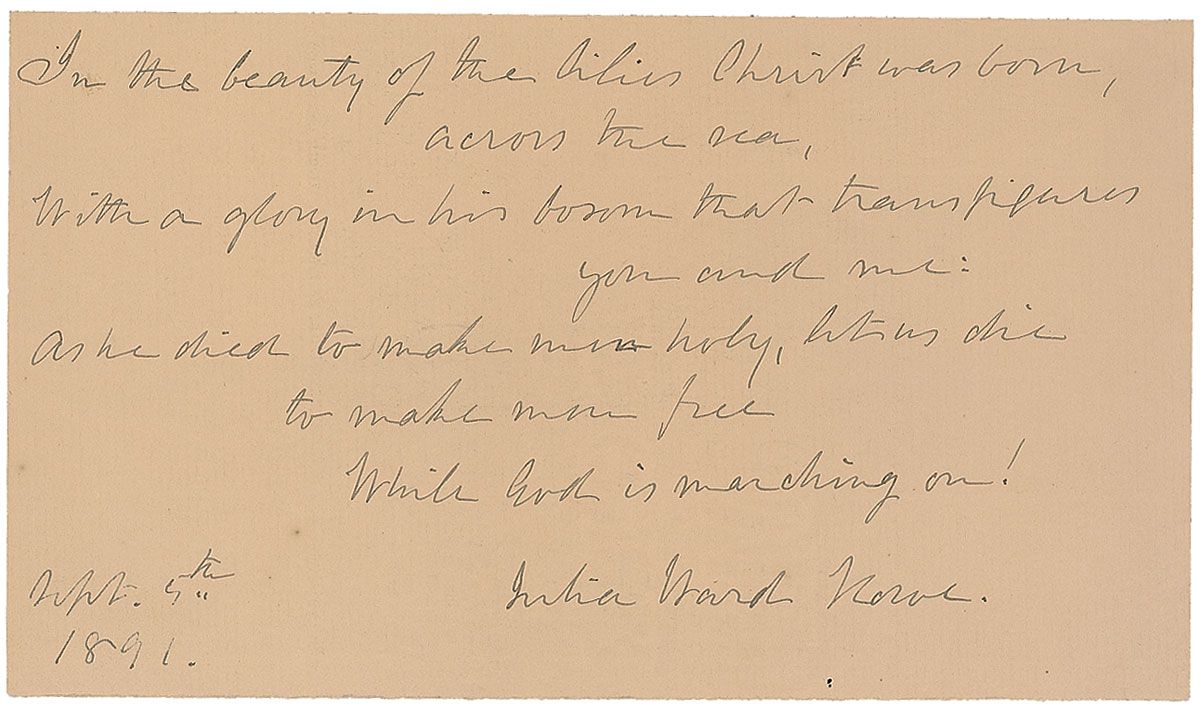 In the beauty of the lilies Christ was born,
across the sea,
With a glory in his bosom that transfigures
you and me:
As he died to make men holy, let us die
to make men free
While God is marching on!
Sept. 5th
Julia Ward Howe.
1891.